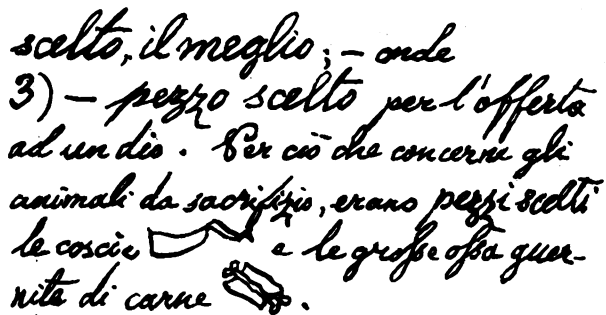 scelto, il meglio; – onde
3) – pezzo scelto per l'offerta
ad un dio. Per ciò che concerne gli
animali da sacrifizio, erano pezzi scelti
le coscie e le grosse ossa guer-
nite di carne .